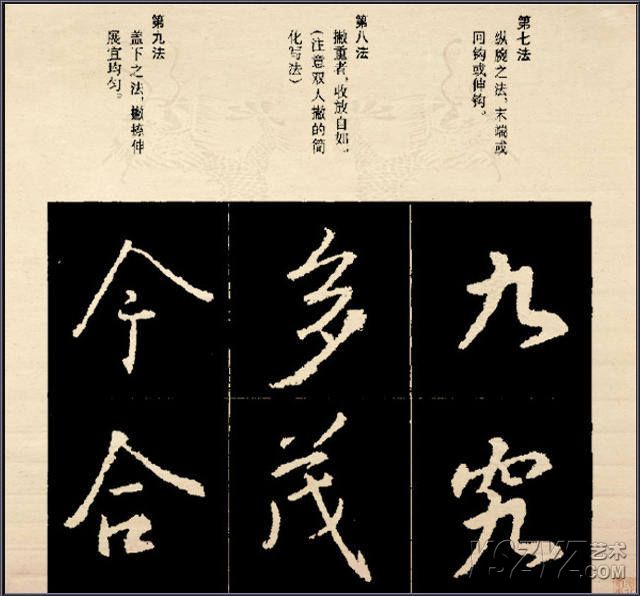 第七法
纵腕之法，末端或
回钩或伸钩。
第八法
撇重者，收放自如，
（注意双人撇的简
化写法）
第九法
盖下之法，撇捺伸
展宜均匀。
九
究
多
茂
今
合
VSZYZ艺术
.COM